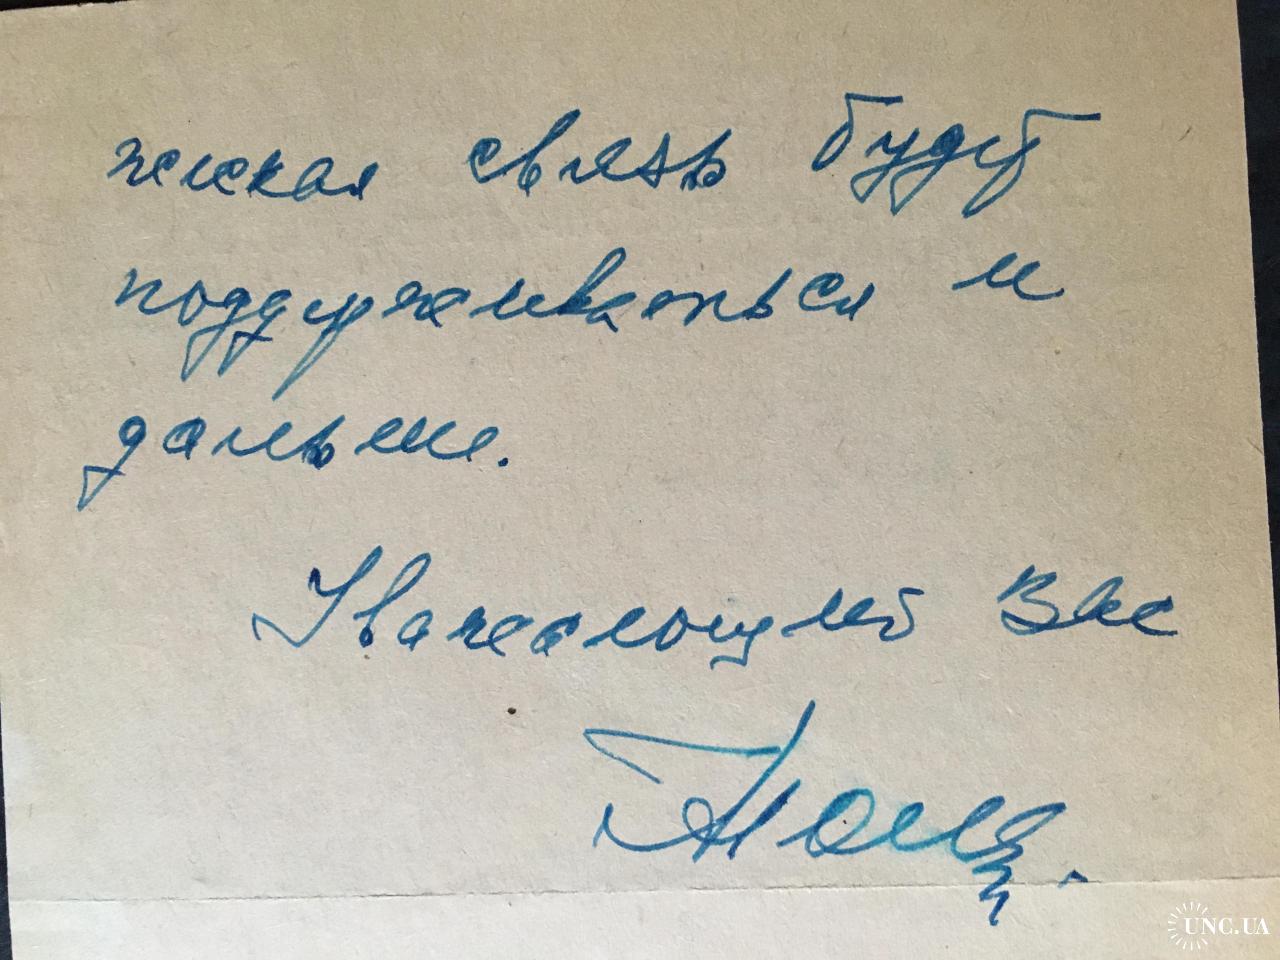 ческая связь будет
поддерживаться и
дальше.
Уважающий Вас
UNC.UA